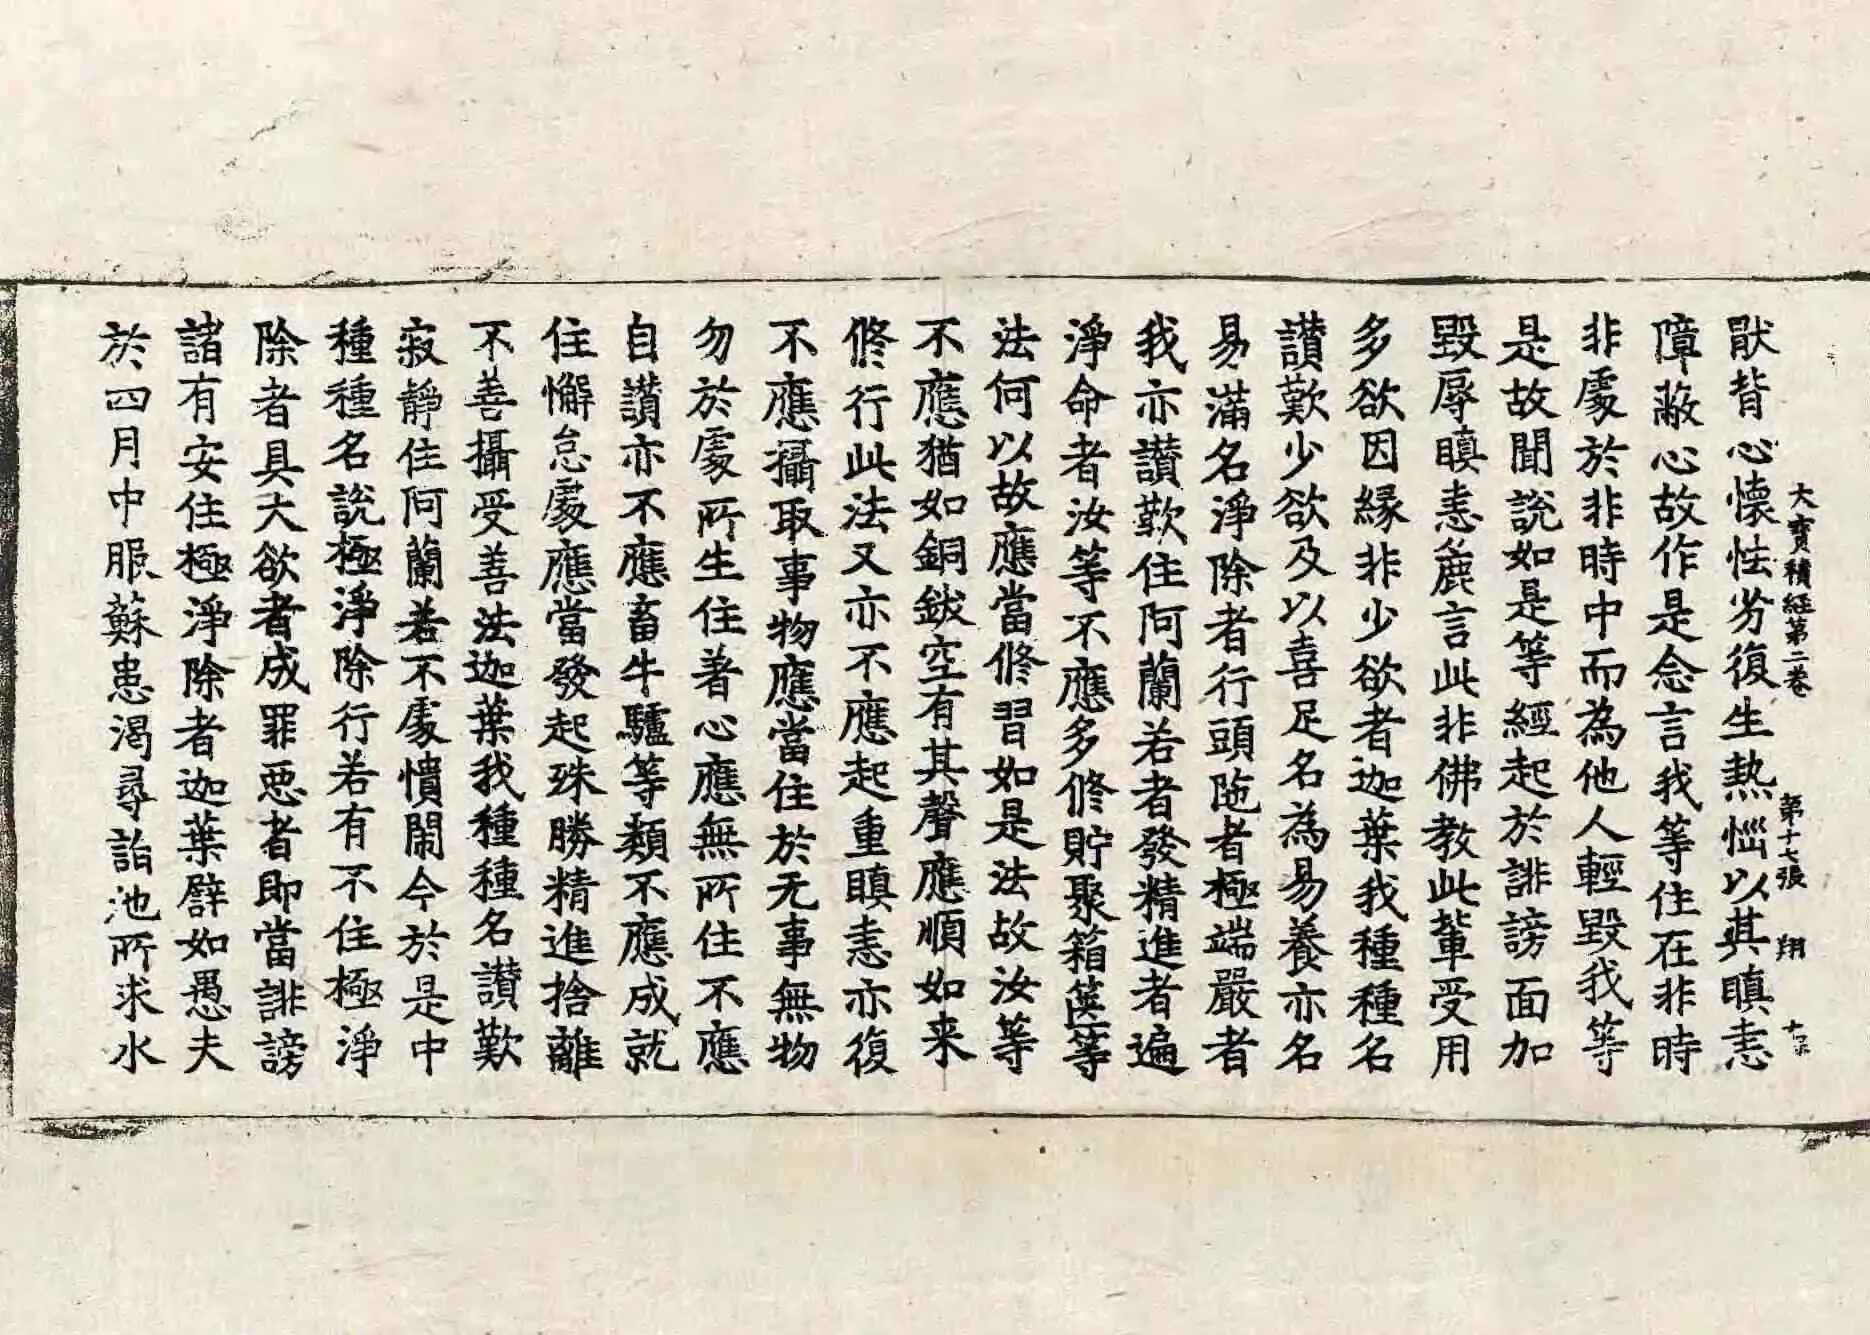 大寶積經第二卷 第十七張 翔
猒背心懷怯劣復生熱惱以其瞋恚
障蔽心故作是念言我等住在非時
非處於非時中而為他人輕毀我等
是故聞說如是等經起於誹謗面加
毀辱瞋恚麁言此非佛教此輩受用
多欲因緣非少欲者迦葉我種種名
讚歎少欲及以喜足名為易養亦名
易滿名淨除者行頭陁者極端嚴者
我亦讚歎住阿蘭若者發精進者遍
淨命者汝等不應多修貯聚箱篋等
法何以故應當修習如是法故汝等
不應猶如銅鈸空有其聲應順如来
修行此法又亦不應起重瞋恚亦復
不應攝取事物應當住於无事無物
勿於處所生住著心應無所住不應
自讚亦不應畜牛驢等類不應成就
住懈怠處應當發起殊勝精進捨離
不善攝受善法迦葉我種種名讚歎
寂靜住阿蘭若不處憒閙今於是中
種種名說極淨除行若有不住極淨
除者具大欲者成罪惡者即當誹謗
諸有安住極淨除者迦葉譬如愚夫
於四月中服蘇患渴尋詣池所求水